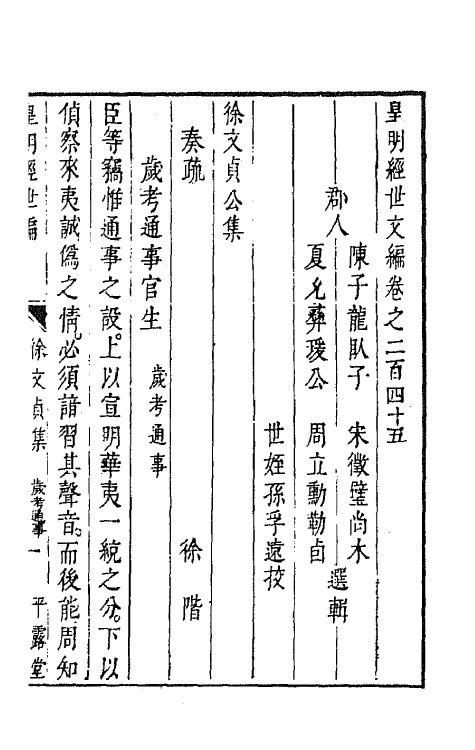 皇明經世文編卷之二百四十五
郡人
陳子龍臥子 宋徵璧尚木
夏允彝瑗公 周立勳勒卣
選輯
世姪孫孚遠挍
徐文貞公集
奏疏 徐 階
歲考通事官生 歲考通事
臣等竊惟通事之設。上以宣明華夷一統之分。下以
偵察來夷誠僞之情。必須諳習其聲音。而後能周知
皇明經世編 徐文貞集 歲考通事 一 平露堂